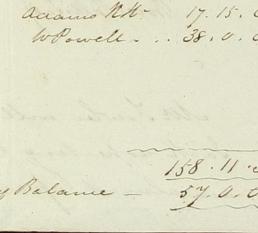 Adams R H - 17. 15. 0
W Powell - . . 38. 0. 0
158. 11. 0
y Balance — 57. 0. 0